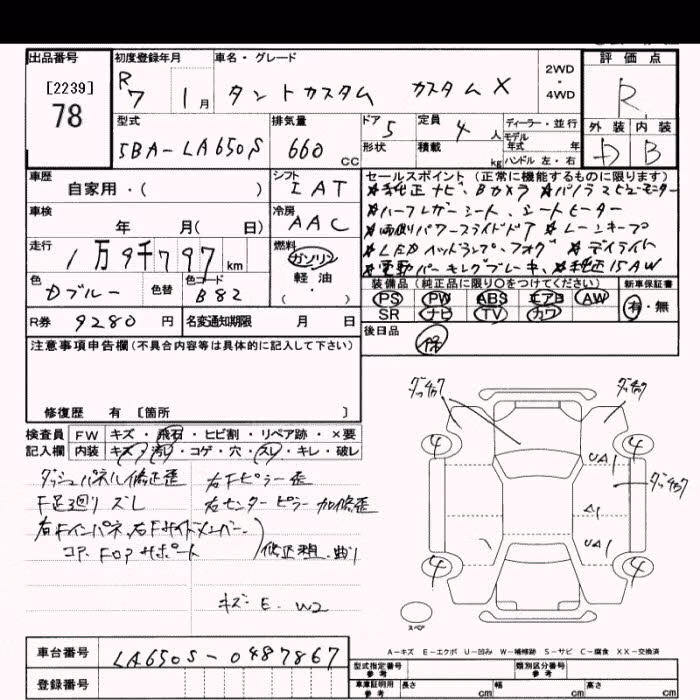 出品番号 初度登録年月 車名・グレード 2WD・4WD 評価点
[2239]
78
R7 1月 タントカスタム カスタムX R
型式 排気量 ドア 定員 ディーラー・並行 外装 内装
5BA-LA650S 660 CC 5 4人 モデル年式 年 D B
形状 積載 kg ハンドル 左・右
車歴 シフト セールスポイント (正常に機能するものに限ります)
自家用・( ) IAT ★純正ナビ、Bカメラ ★パノラマビューモニター
車検 冷房 ★ハーフレザーシート、シートヒーター
年 月( 日) AAC ★両側パワースライドドア ★レーンキープ
走行 燃料 ★LEDヘッドランプ、フォグ ★デイライト
1万9千797km ガソリン ★電動パーキングブレーキ、★純正15AW
軽油・( )
色 色替 色コード 装備品 (純正品に限り○をつけてください) 新車保証書
Dブルー B82 PS PW ABS エアB AW 有・無
SR ナビ TV カワ
R券 9280円 名変通知期限 月 日 後日品 保
注意事項申告欄 (不具合内容等は具体的に記入して下さい)
修復歴 有 [箇所 ]
検査員 FW キズ・飛石・ヒビ割・リペア跡・×要
記入欄 内装 キズ・汚レ・コゲ・穴・スレ・キレ・破レ
ダッシュパネル修正歪 右Fピラー歪
F足廻りズレ 右センターピラー加修歪
右Fインパネ、右Fサイドメンバー、
コア、FOPサポート 修正程、曲り
キズ・E・W2
4 4 UA1
A1
4 4 UA1
スペア
A-キズ E-エクボ U-凹み W-補修跡 S-サビ C-腐食 XX-交換済
車台番号 LA650S-0487867 型式指定番号 参考 類別区分番号 参考
登録番号 車庫証明用 参考 長さ cm 幅 cm 高さ cm